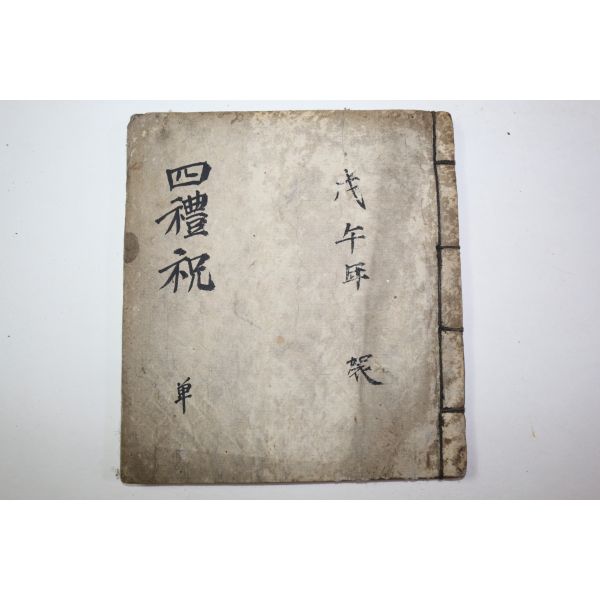 戊午年
四禮祝
单